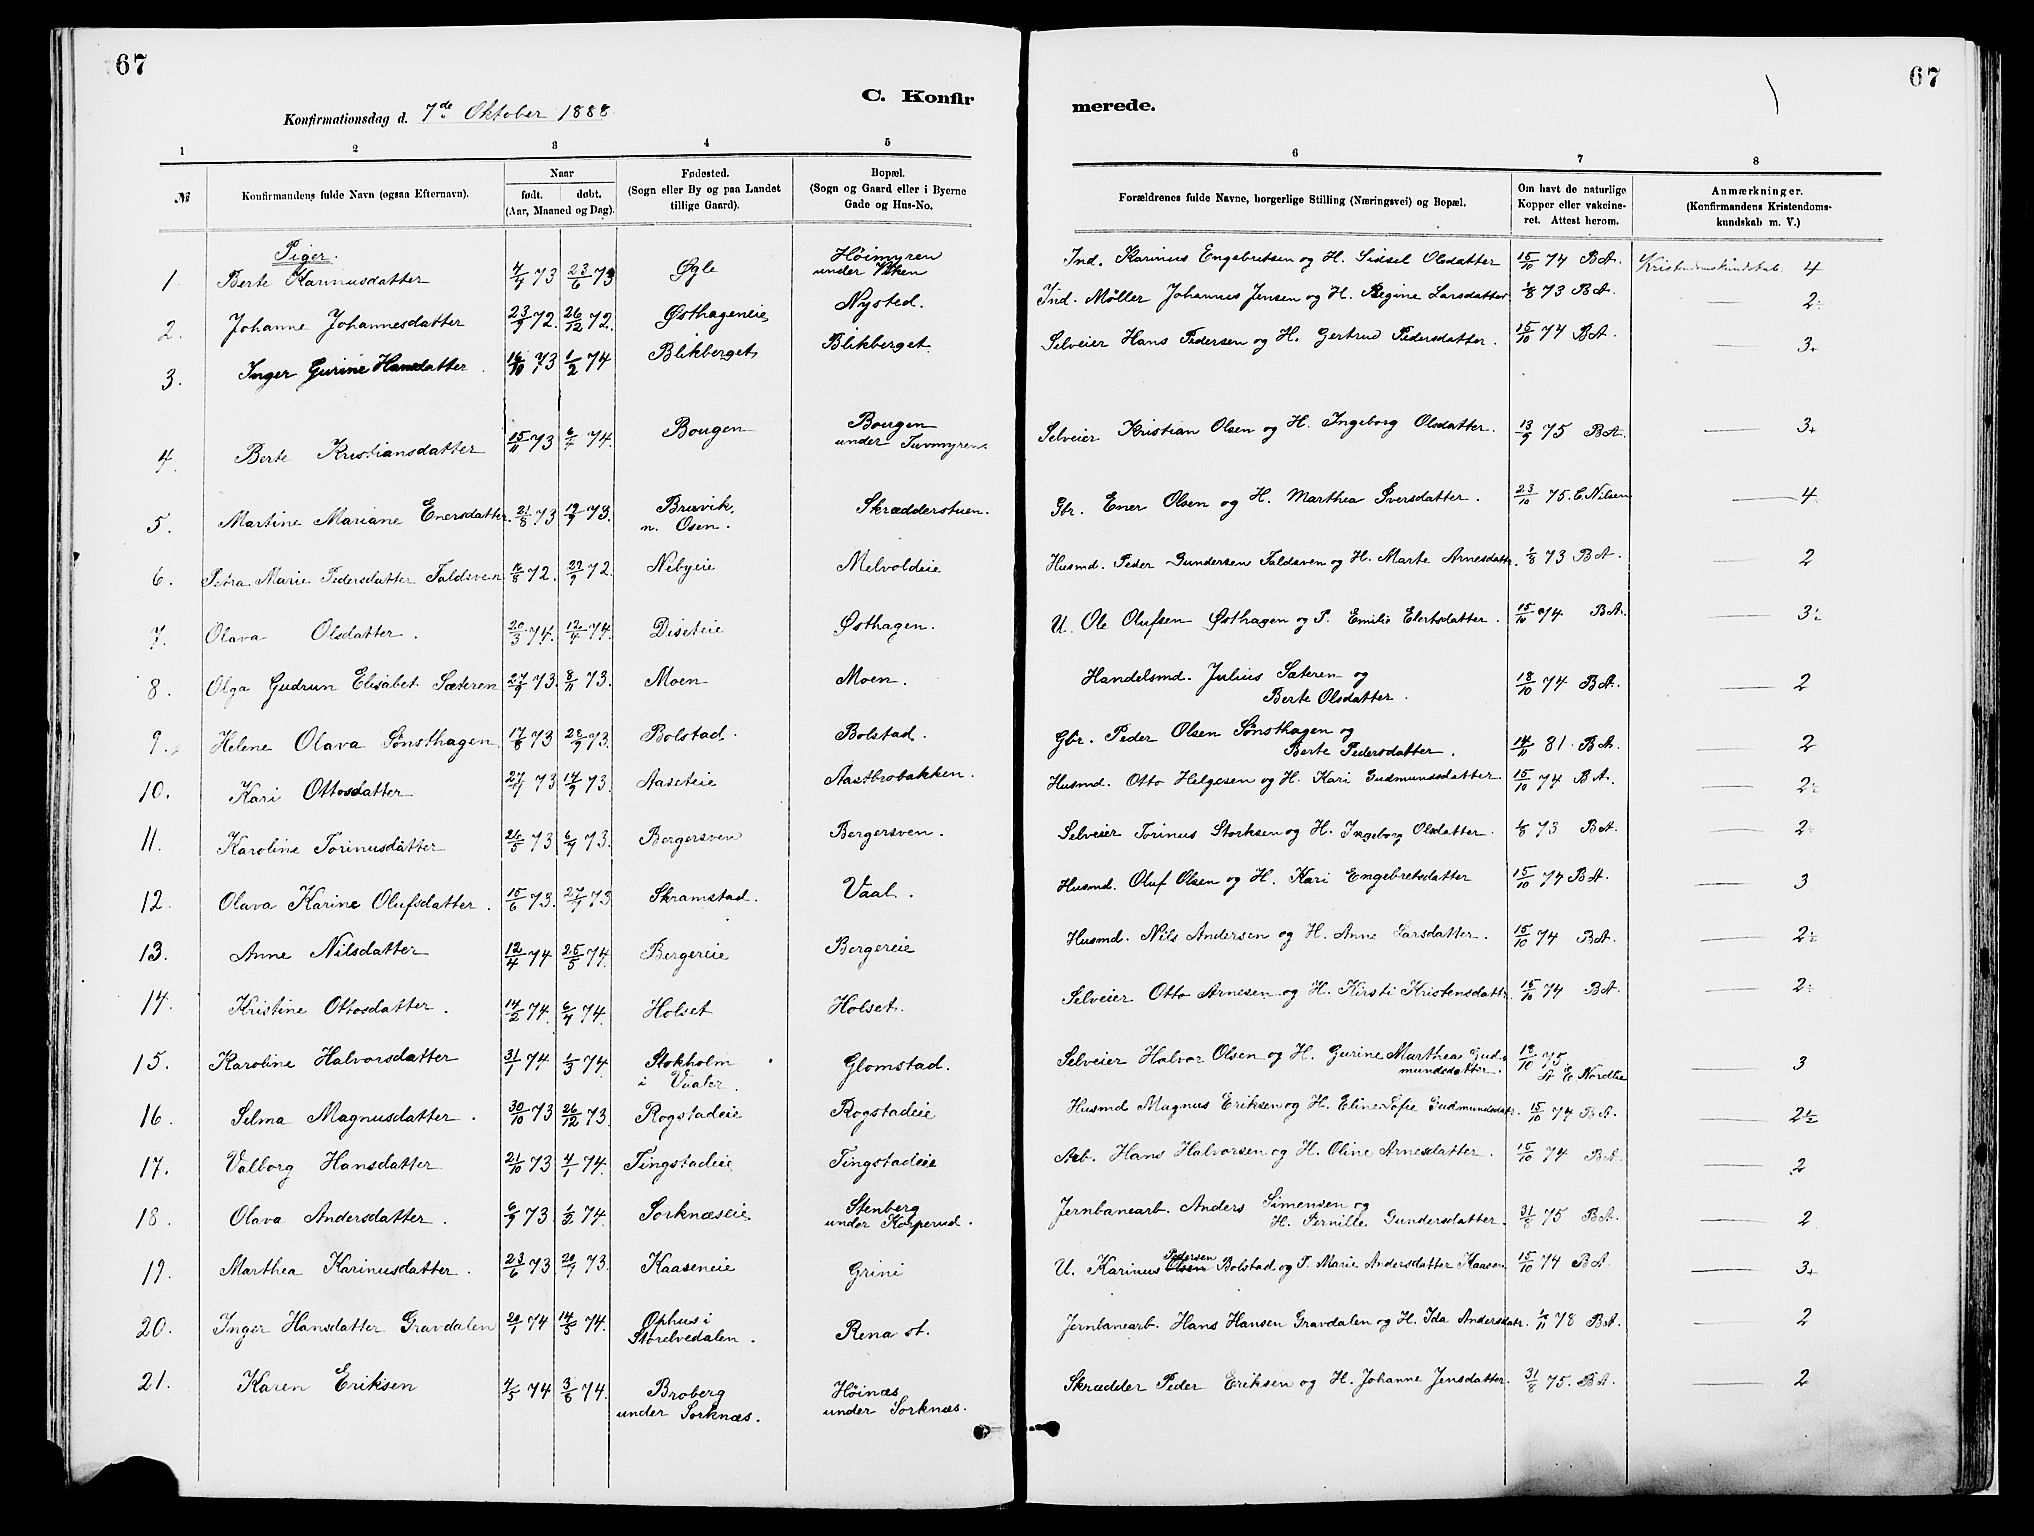 67
67
C. Konfir
merede.
Konfirmationsdag d. 7de Oktober 1888
1 2 3 4 5 6 7 8
№ Konfirmandens fulde Navn (ogsaa Efternavn). Naar født. døbt. (Aar, Maaned og Dag). Fødested. (Sogn eller By og paa Landet tillige Gaard). Bopæl. (Sogn og Gaard eller i Byerne Gade og Hus-No. Forældrenes fulde Navne, borgerlige Stilling (Næringsvei) og Bopæl. Om havt de naturlige Kopper eller vakcineret. Attest herom. Anmærkninger. (Konfirmandens Kristendomskundskab m. V.)
Piger.
1. Berte Karinusdatter 4/4 73 23/6 73 Øgle Høimyren under Viken Ind. Karinus Engebretsen og H. Sidsel Olsdatter 15/10 74 B A. Kristendomskundskab 4
2. Johanne Johannesdatter 23/9 72. 26/12 72. Østhageneie Nysted. Ind. Møller Johannes Jensen og H. Regine Larsdatter 1/8 73 B A. 2÷
3. Inger Gurine Hansdatter 16/10 73 1/2 74 Blikberget Blikberget. Selveier Hans Pedersen og H. Gertrud Pedersdatter. 15/10 74 B A. 3+
4. Berte Kristiansdatter 15/11 73 6/4 74. Bougen Bougen under Tuvmyren. Selveier Kristian Olsen og H. Ingeborg Olsdatter. 13/9 75 B A. 3+
5. Martine Mariane Enersdatter. 21/8 73 19/9 73. Bruvik, n. Osen. Skrædderstuen. Gbr. Ener Olsen og H. Marthea Iversdatter. 23/10 75. C. Nilsen 4
6. Petra Marie Pedersdatter Faldsven 16/8 72. 29/9 72. Nebyeie Melvoldeie Husmd. Peder Gundersen Faldsven og H. Marte Arnesdattr. 1/8 73 B A. 2
7. Olava Olsdatter. 20/3 74. 12/4 74. Diseteie Østhagen. U. Ole Olufsen Østhagen og P. Emilie Elertsdatter. 15/10 74 B A. 3÷
8. Olga Gudrun Elisabet Sæteren 27/9 73. 8/11 73. Moen Moen. Handelsmd. Julius Sæteren og Berte Olsdatter. 18/10 74 B A. 2
9. Helene Olava Sønsthagen 17/8 73 28/9 73. Bolstad. Bolstad. Gbr. Peder Olsen Sønsthagen og Berte Pedersdatter. 14/11 81. B A. 2
10. Kari Ottosdatter 27/7 73 14/9 73. Aaseteie Aastbrobakken. Husmd. Otto Helgesen og H. Kari Gudmundsdatter 15/10 74 B A. 2÷
11. Karoline Torinusdatter 26/5 73 6/7 73. Bergersven Bergersven. Selveier Torinus Storksen og H. Ingeborg Olsdatter. 1/8 73 B A. 2÷
12. Olava Karine Olufsdatter. 15/6 73. 27/7 73 Skramstad. Vaal. Husmd. Oluf Olsen og H. Kari Engebretsdatter 15/10 74 B A. 3
13. Anne Nilsdatter 12/4 74 25/5 74. Bergereie Bergereie Husmd. Nils Andersen og H. Anne Larsdatter. 15/10 74 B A. 2÷
14. Kristine Ottosdatter. 14/2 74. 6/4 74. Holset Holset. Selveier Otto Arnesen og H. Kirsti Kristensdattr. 15/10 74 B A. 2÷
15. Karoline Halvorsdatter 31/1 74 1/3 74. Stokholm i Vaaler. Glomstad. Selveier Halvor Olsen og H. Gurine Marthea Gudmundsdatter. 18/10 75 A E Nordlie 3
16. Selma Magnusdatter. 30/10 73 26/12 73. Rogstadeie Rogstadeie Husmd Magnus Eriksen og H. Eline Sofie Gudmundsdatr. 15/10 74 B A. 2½
17. Valborg Hansdatter 21/10 73 4/1 74. Tingstadeie Tingstadeie Arb. Hans Halvorsen og H. Oline Arnesdatter. 15/10 74 B A. 2
18. Olava Andersdatter. 6/9 73. 1/2 74. Sorknæseie Stenberg under Korperud. Jernbanearb. Anders Simensen og H. Pernille Gundersdatter. 31/8 75 B A. 2
19. Marthea Karinusdatter. 23/6 73 20/7 73. Kaaseneie Grini U. Karinus Olsen Pedersen Bolstad og P. Marie Andersdatter Kaasen 15/10 74 B A. 3+
20. Inger Hansdatter Gravdalen 20/1 74 14/5 74. Ophus i Storelvedalen. Rena st. Jernbanearb. Hans Hansen Gravdalen og H. Ida Andersdatr. 78 B A. 2
21. Karen Eriksen 4/5 74 3/6 74. Broberg under Sorknæs. Høinæs under Sorknæs. Skrædder Peder Eriksen og H. Johanne Jensdatter. 31/8 75. B A. 2